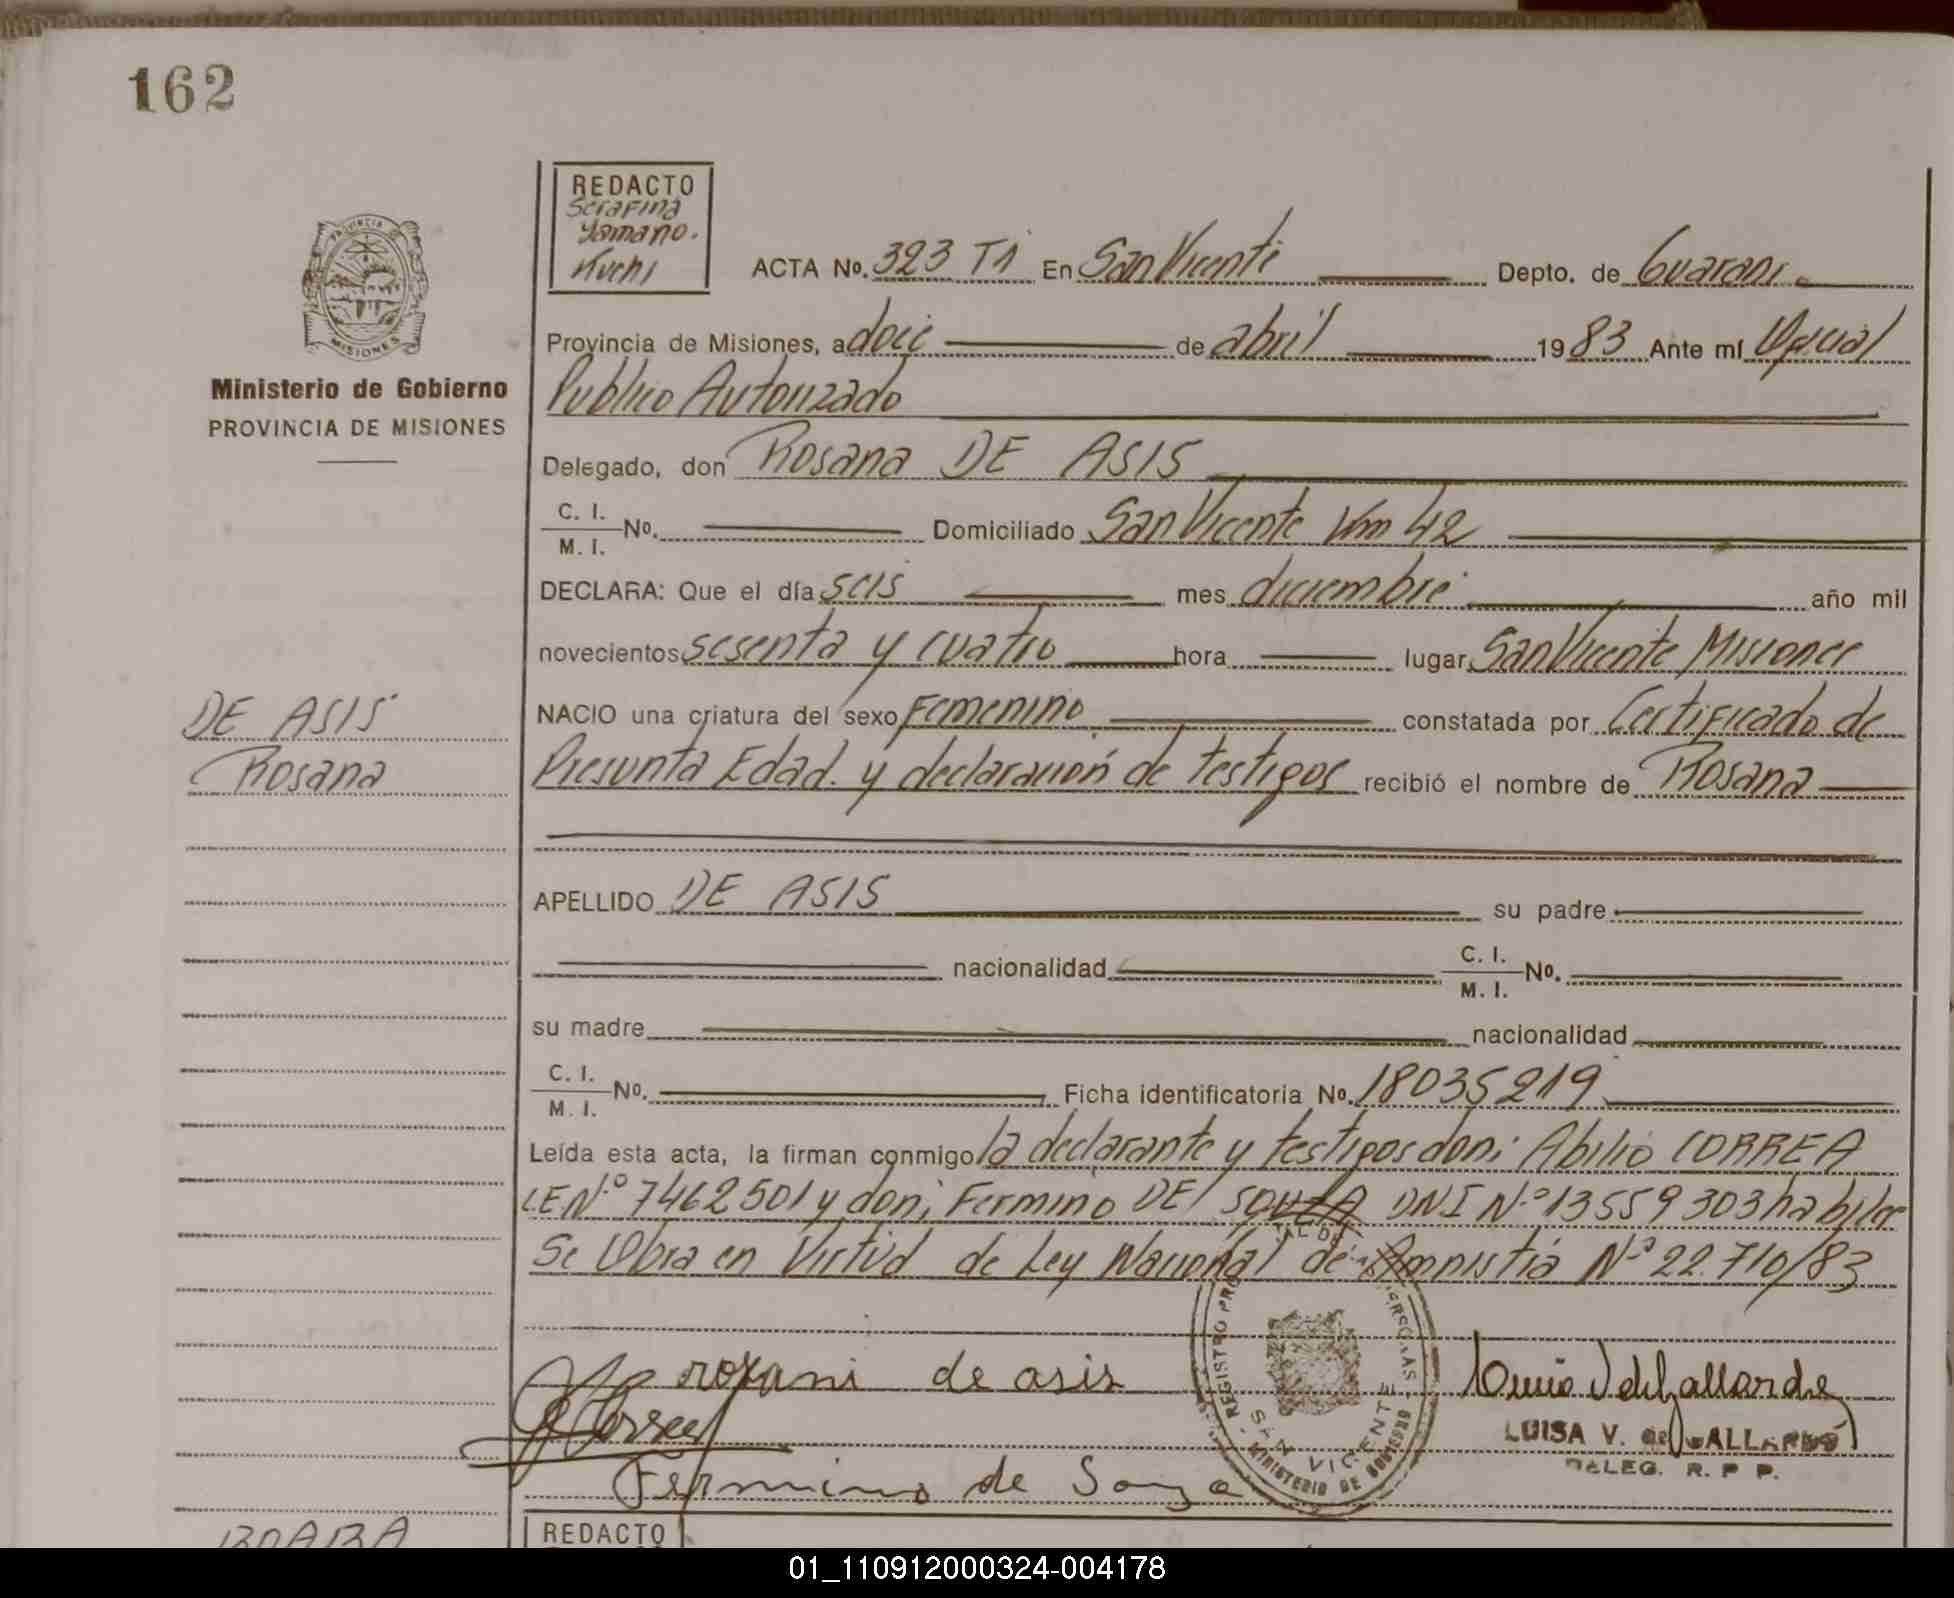 162
REDACTO
Serafina
Yamano.
Kuchi
PROVINCIA DE
MISIONES
Ministerio de Gobierno
PROVINCIA DE MISIONES
ACTA No. 323 T1 En San Vicente Depto. de Guarani
Provincia de Misiones, a doce de abril 1983 Ante mí Oficial
Publico Autorizado
Delegado, don Rosana DE ASIS
C. I.
M. I. No. Domiciliado San Vicente Km 42
DECLARA: Que el día seis mes diciembre año mil
novecientos sesenta y cuatro hora lugar San Vicente Misiones
NACIO una criatura del sexo Femenino constatada por Certificado de
Presunta Edad. y declaración de testigos recibió el nombre de Rosana
DE ASIS
Rosana
APELLIDO DE ASIS su padre
nacionalidad C. I.
M. I. No.
su madre nacionalidad
C. I.
M. I. No. Ficha identificatoria No. 18035219
Leída esta acta, la firman conmigo la declarante y testigos don: Abilio CORREA
L.E.Nº 7462501 y don; Fermino DE SOUZA DNI Nº 13559303 habiles
Se Obra en Virtud de Ley Nacional de Amnistia Nº 22.710/83
rozani de asis
A Correa
Fermino de Souza
REGISTRO PRO AL DE ERSONAS
SAN VICENTE
MINISTERIO DE GOBIERNO
LUISA V. de GALLARDO
DELEG. R. P. P.
REDACTO
01_110912000324-004178